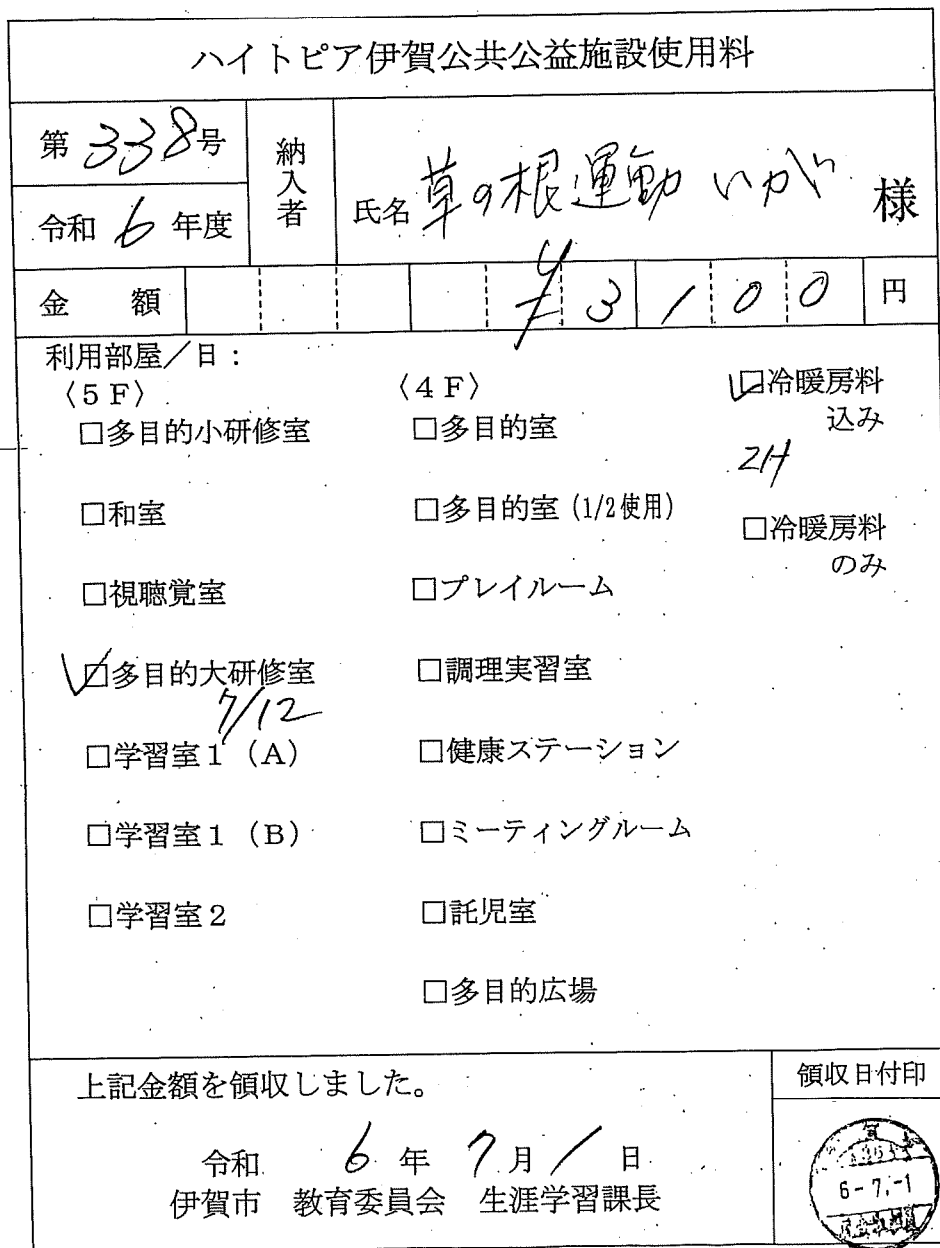 ハイトピア伊賀公共公益施設使用料
第 338 号
令和 6 年度
納入者
氏名 草の根運動 いが 様
金額 ¥3100 円
利用部屋/日:
〈5F〉
□多目的小研修室
□和室
□視聴覚室
☑多目的大研修室
7/12
□学習室1(A)
□学習室1(B)
□学習室2
〈4F〉
□多目的室
□多目的室(1/2使用)
□プレイルーム
□調理実習室
□健康ステーション
□ミーティングルーム
□託児室
□多目的広場
☑冷暖房料
込み
2H
□冷暖房料
のみ
上記金額を領収しました。
令和 6 年 7 月 1 日
伊賀市 教育委員会 生涯学習課長
領収日付印
6-7.-1